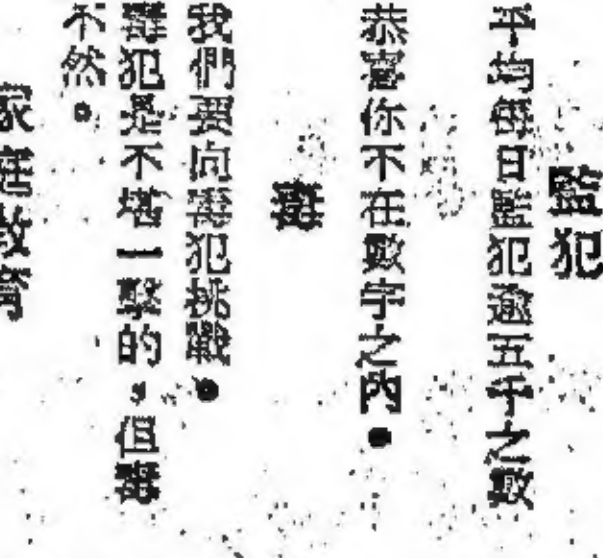 監犯
平均每日監犯逾五千之數
恭喜你不在數字之內。
毒
我們要向毒犯挑戰。
毒犯是不堪一擊的，但毒
不然。
家庭教育